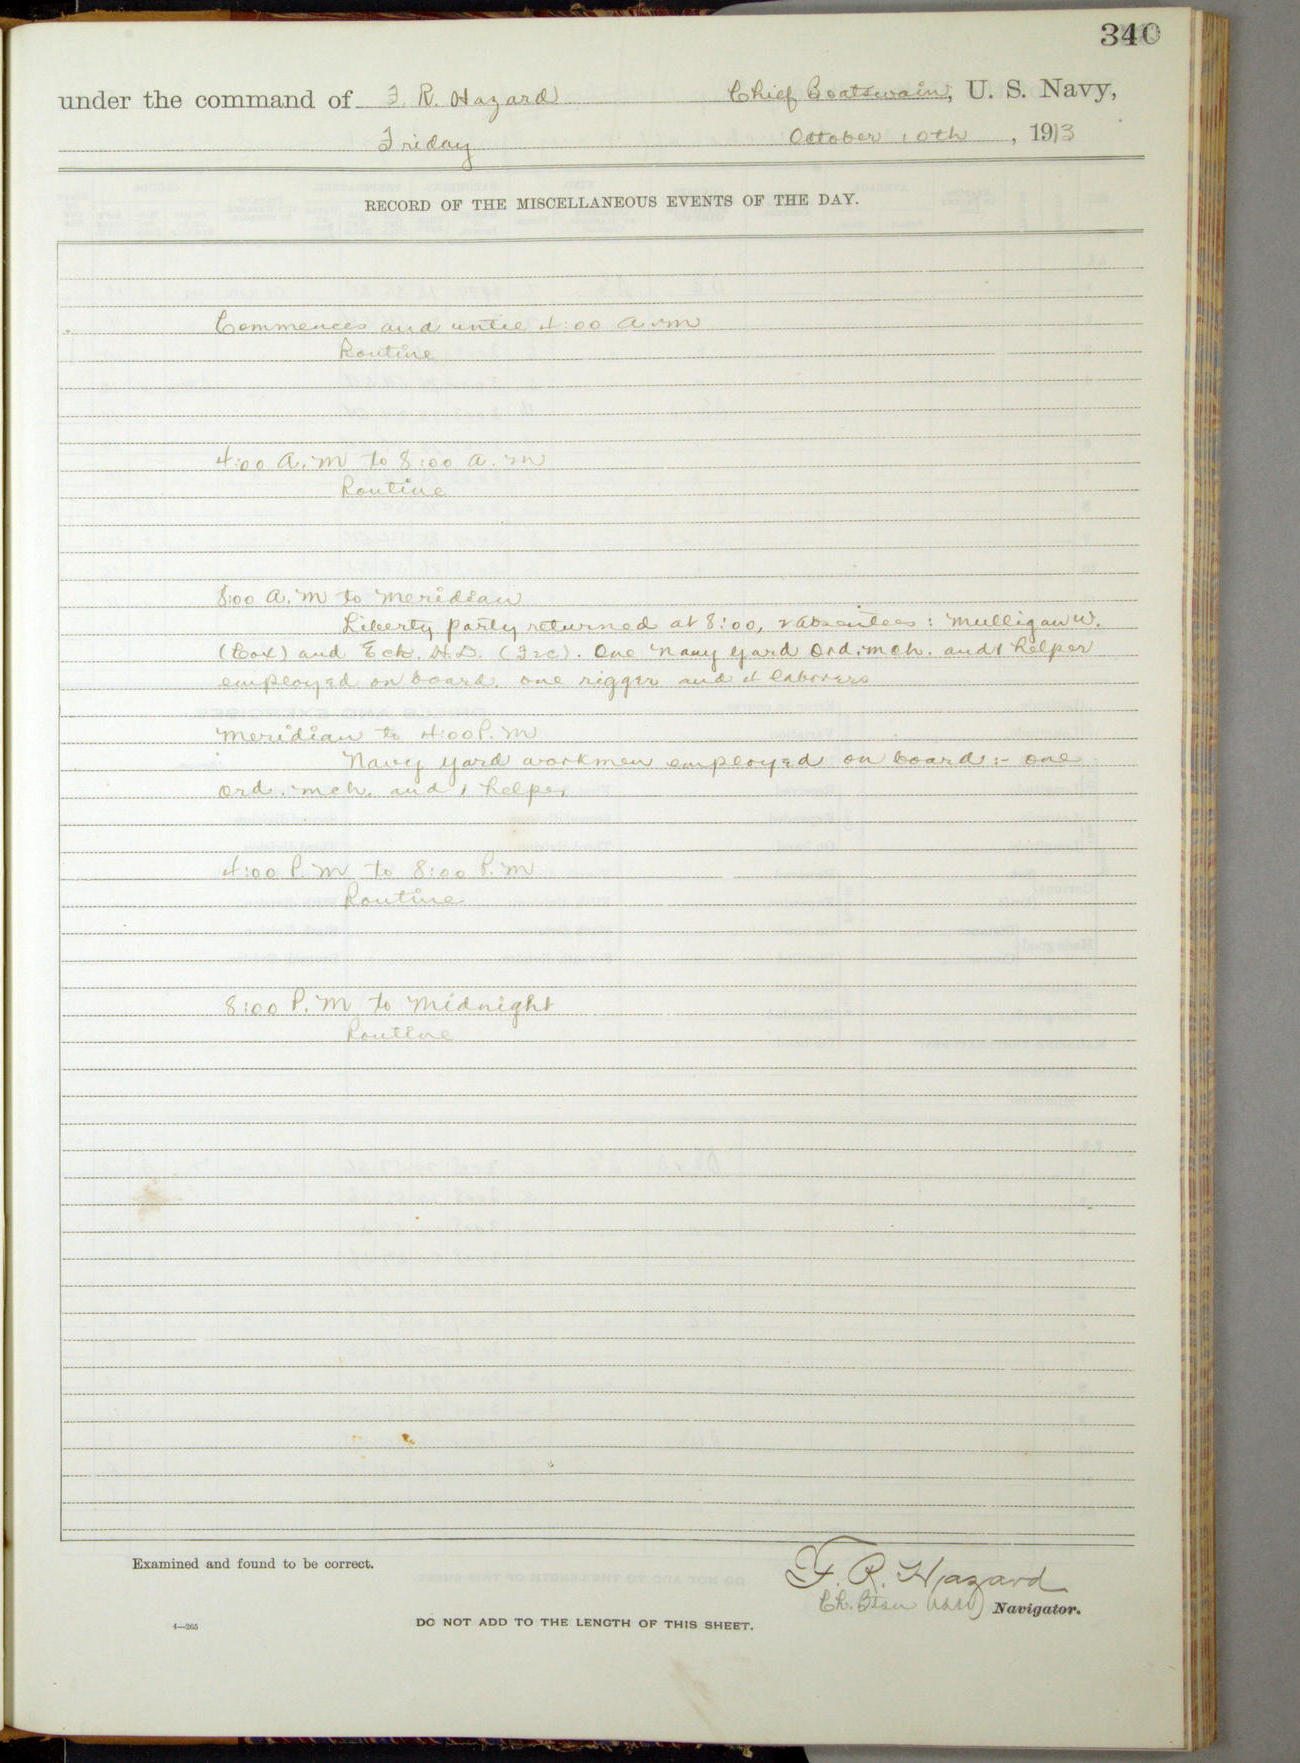 340
under the command of F. R. Hazard Chief Boatswain, U. S. Navy,
Friday October 10th, 1913
RECORD OF THE MISCELLANEOUS EVENTS OF THE DAY.
Commences and until 4:00 A.M
Routine
4:00 A.M to 8:00 A.M
Routine
8:00 A.M to Meridian
Liberty party returned at 8:00, absentees: Mulligan W.
(Cox) and Eck. H.D. (F2c). One Navy Yard Ord. mch. and 1 helper
employed on board. one rigger and 4 laborers
Meridian to 4:00 P.M
Navy Yard workmen employed on board:- one
ord. mch. and 1 helper
4:00 P.M to 8:00 P.M
Routine
8:00 P.M to Midnight
Routine
Examined and found to be correct.
F. R. Hazard
Ch. Btsn (USN) Navigator.
4—265
DO NOT ADD TO THE LENGTH OF THIS SHEET.